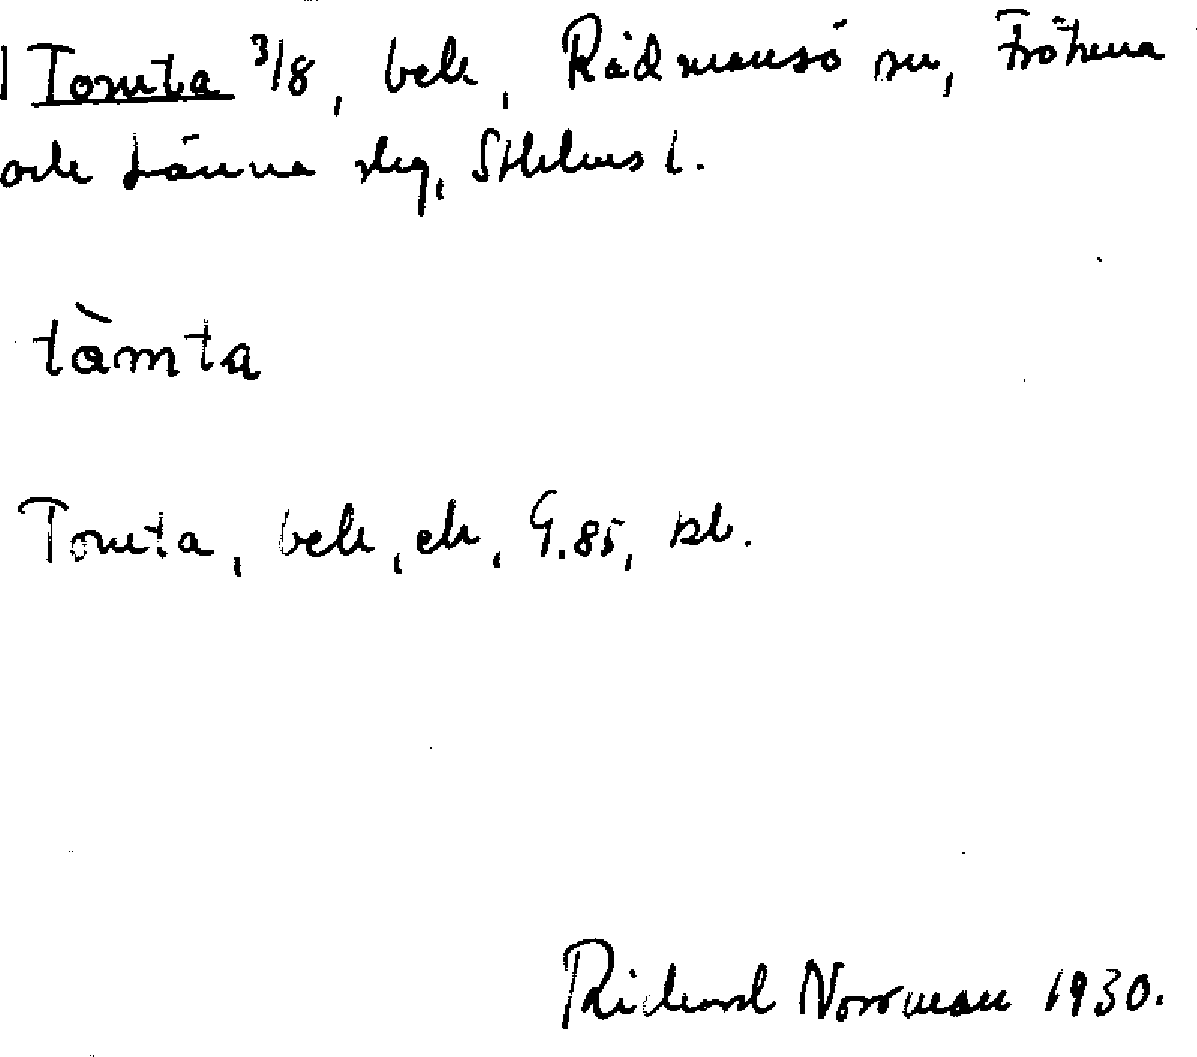 Tomta 3/8, bek, Rådmansö sn, Frötuna
och Länna skg, Sthlms l.
tàmta
Tomta, bek, ek, G.85, kb.
Richard Norrman 1930.